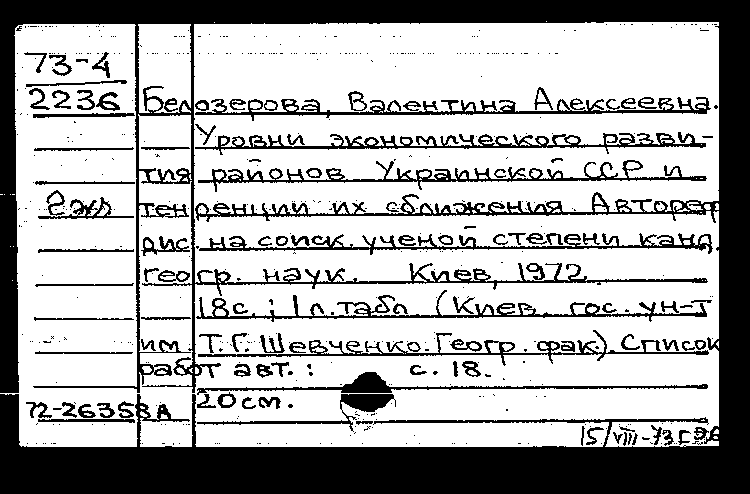 73-4
2236 Белозерова, Валентина Алексеевна.
Уровни экономического разви-
тия районов Украинской ССР и
2 экз тенденции их сближения. Автореф
дис. на соиск. ученой степени канд.
геогр. наук. Киев, 1972
18с.; 1 л. табл (Киев. гос. ун-т
им. Т.Г. Шевченко. Геогр. фак). Список
работ авт.: с. 18.
20см.
72-26358А
15/VIII-73г